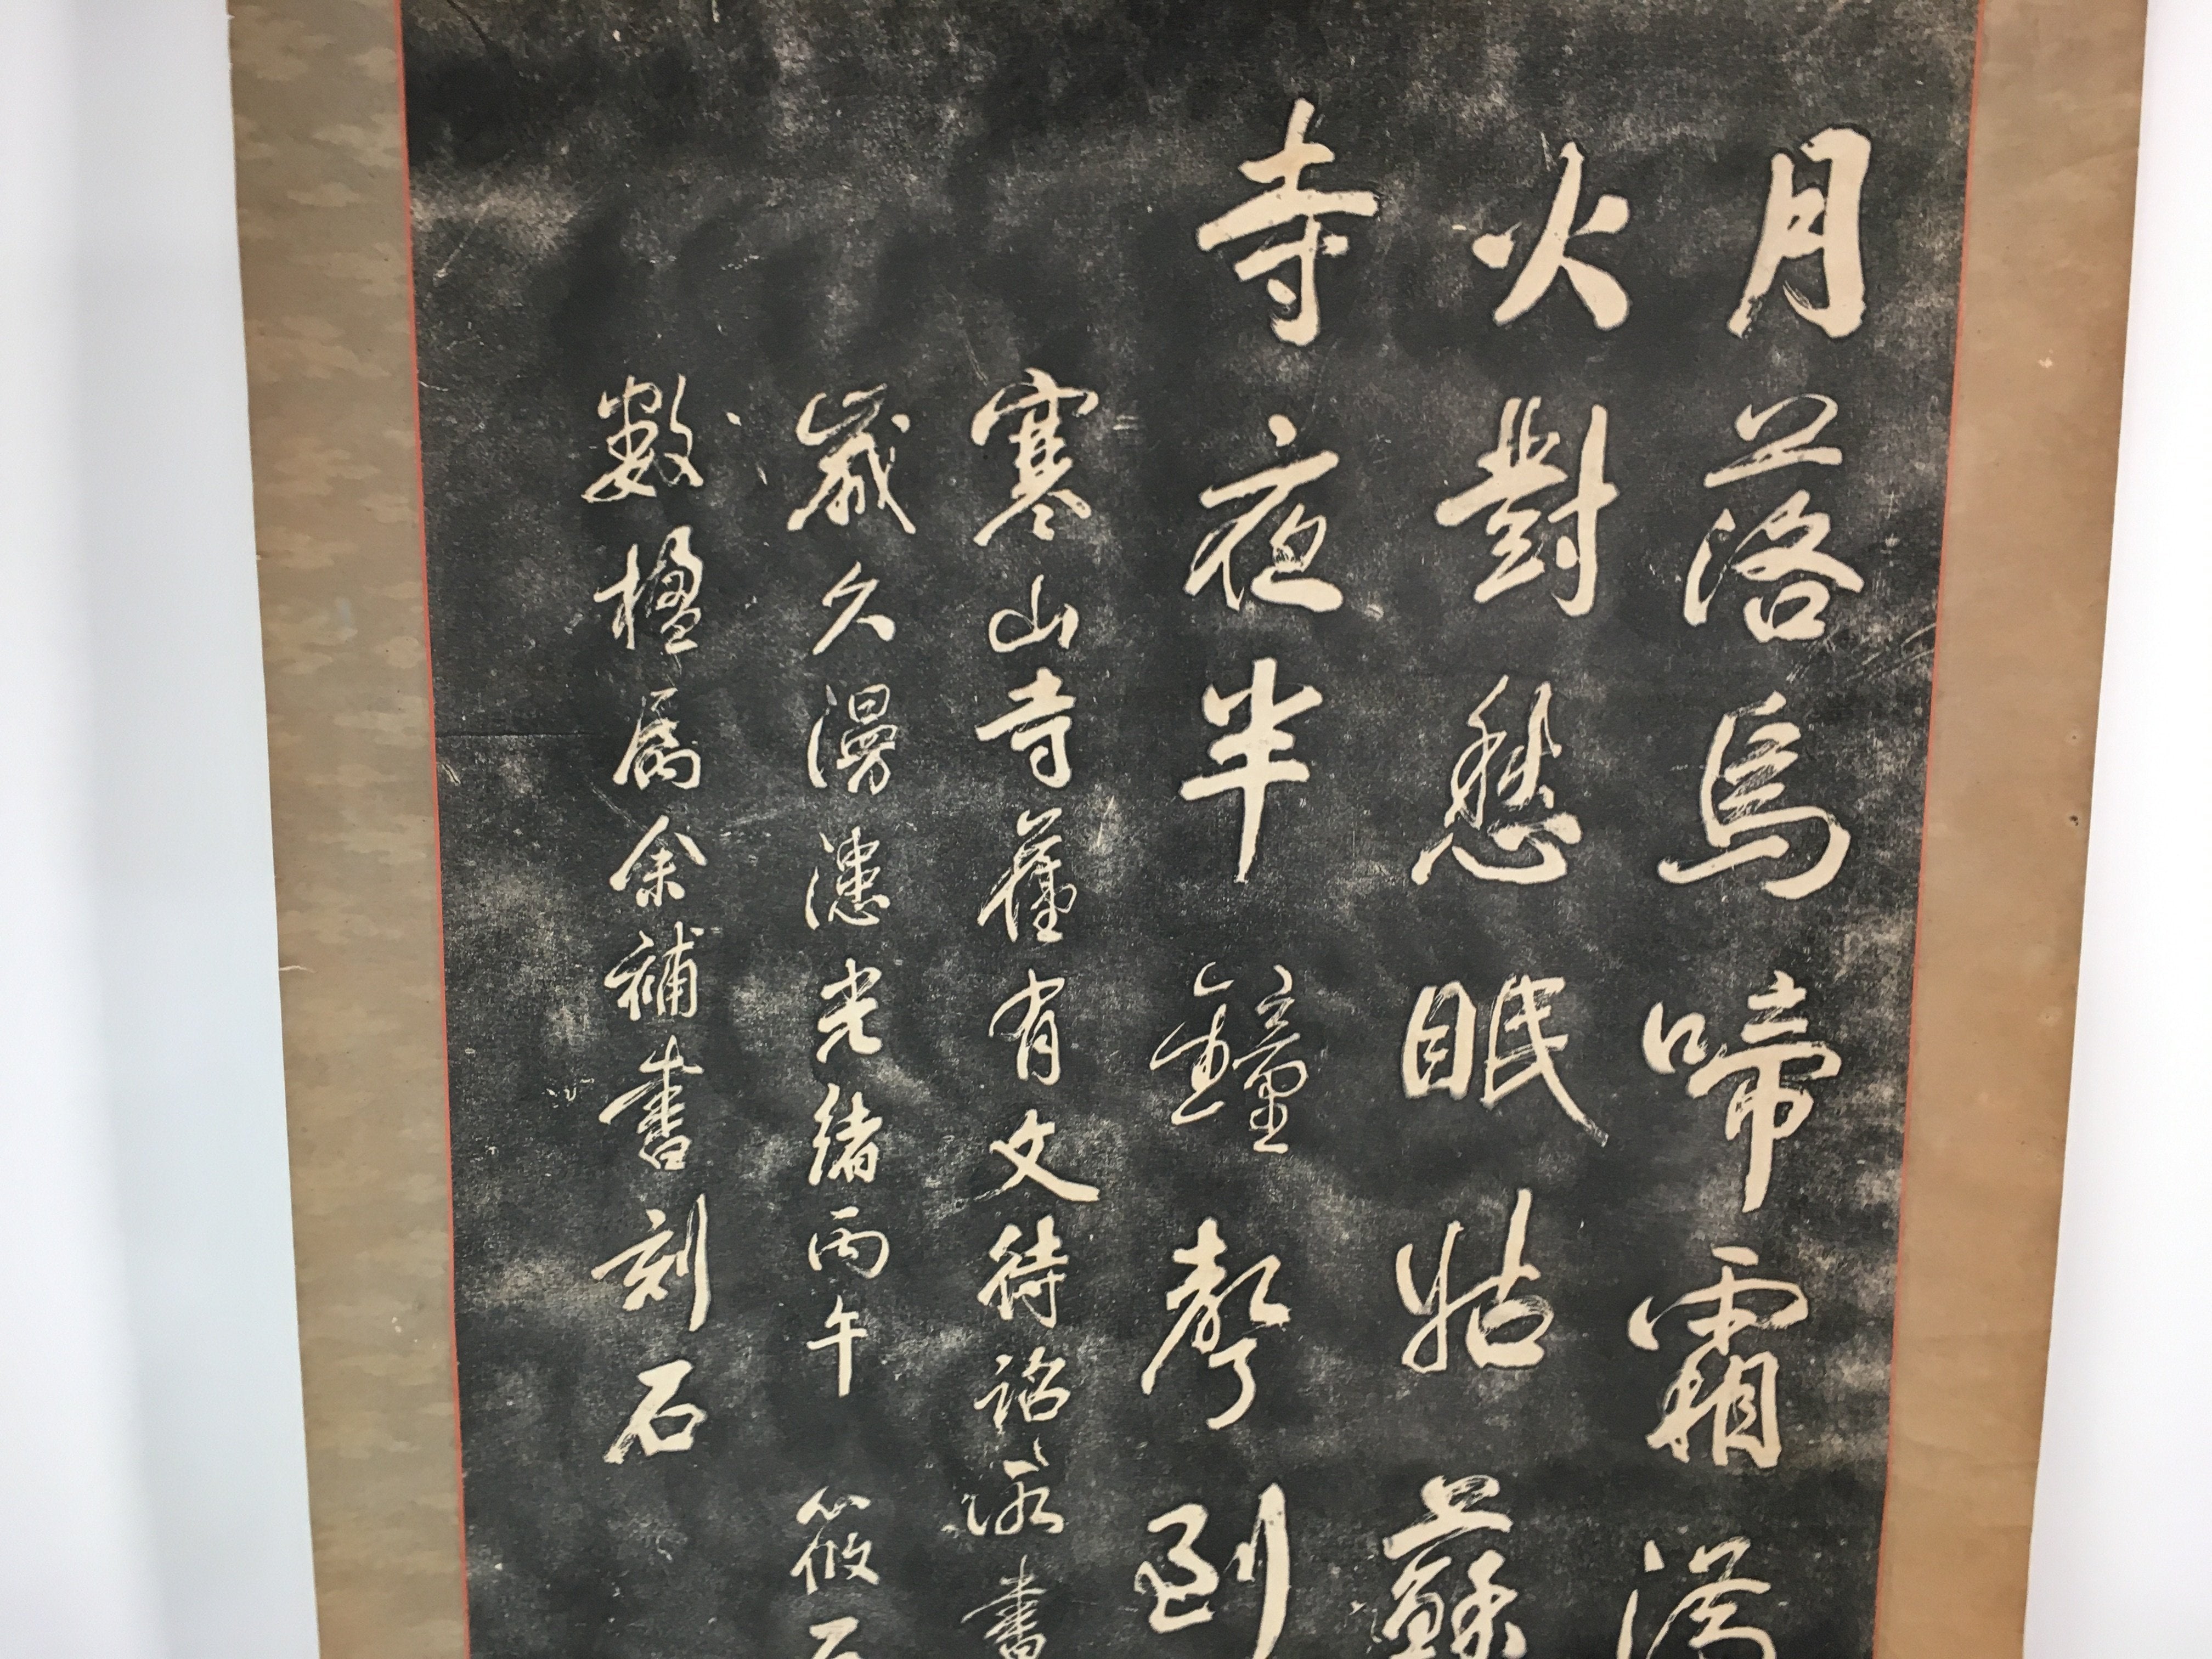 月落烏啼霜滿
火對愁眠姑蘇
寺夜半鐘聲到
寒山寺舊有文待詔所書
歲久漫漶光緒丙午 筱石
數楹屬余補書刻石